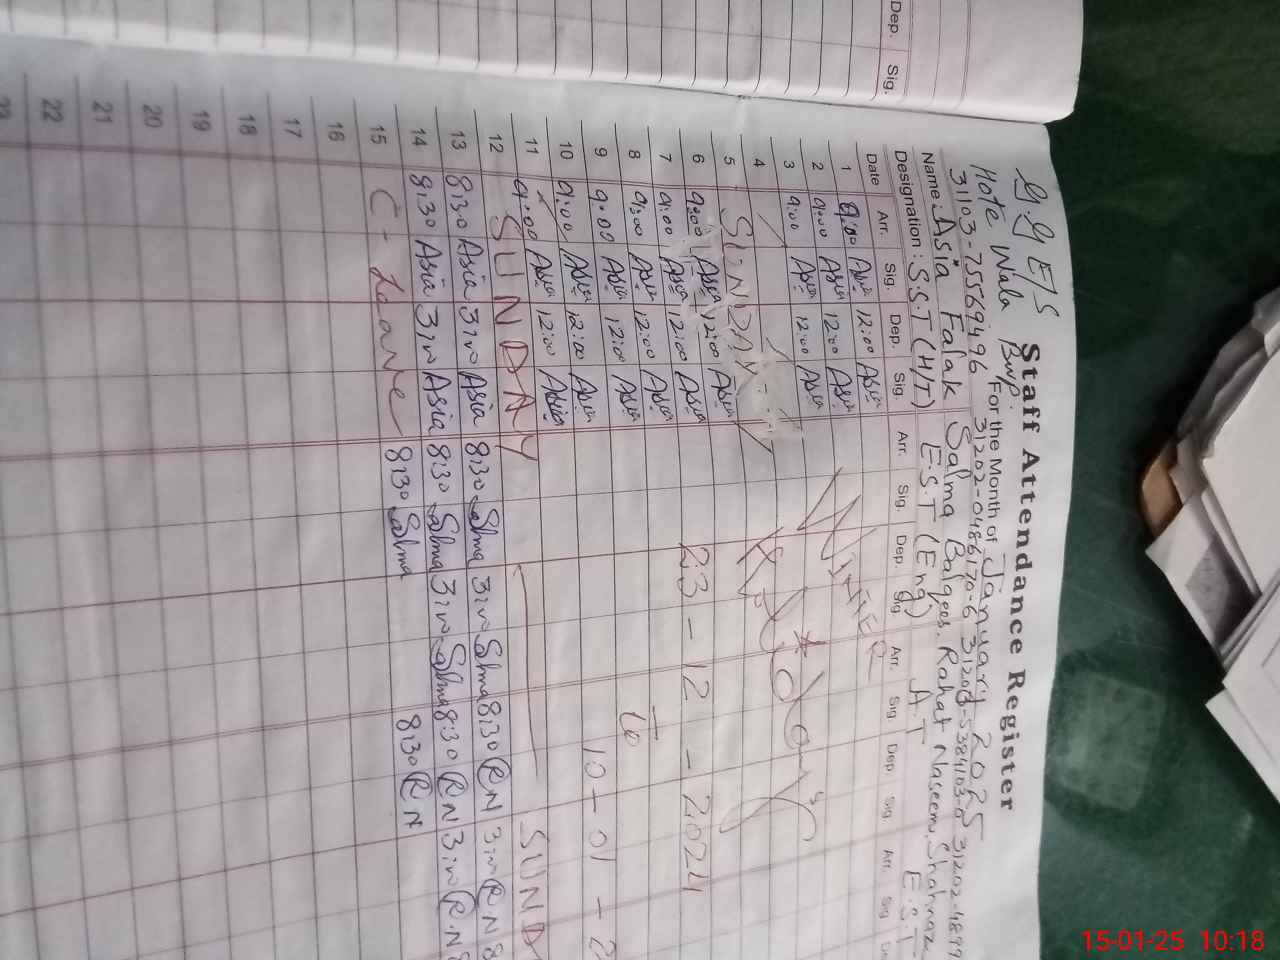 Dep. Sig.
G.G E/S
Hote Wala Bwp.
Staff Attendance Register
For the Month of January 2025
31103-7556949-6 31202-0486170-6 31203-5384103-0 31202-4899
Name: Asia Falak Salma Balqees. Rahat Naseem. Shahnaz
Designation: S.S.T (H/T) E.S.T (Eng) A.T E.S.T
Date Arr. Sig. Dep. Sig. Arr. Sig. Dep. Sig. Arr. Sig. Dep. Sig. Arr. Sig
1 9:00 Asia 12:00 Asia WiNTER
2 9:00 Asia 12:00 Asia
3 9:00 Asia 12:00 Asia
4
5 SUNDAY
6 9:00 Asia 12:00 Asia 23 - 12 - 2024
7 9:00 Asia 12:00 Asia
8 9:00 Asia 12:00 Asia To
9 9:00 Asia 12:00 Asia 10 - 01 - 2
10 9:00 Asia 12:00 Asia
11 9:00 Asia 12:00 Asia
12 SUNDAY SUND
13 8:30 Asia 3:00 Asia 8:30 Salma 3:00 Salma 8:30 R N 3:00 R N 8
14 8:30 Asia 3:00 Asia 8:30 Salma 3:00 Salma 8:30 R N 3:00 R.N 8
15 C - Leave 8:30 Salma 8:30 R N
16
17
18
19
20
21
22
23
15-01-25 10:18